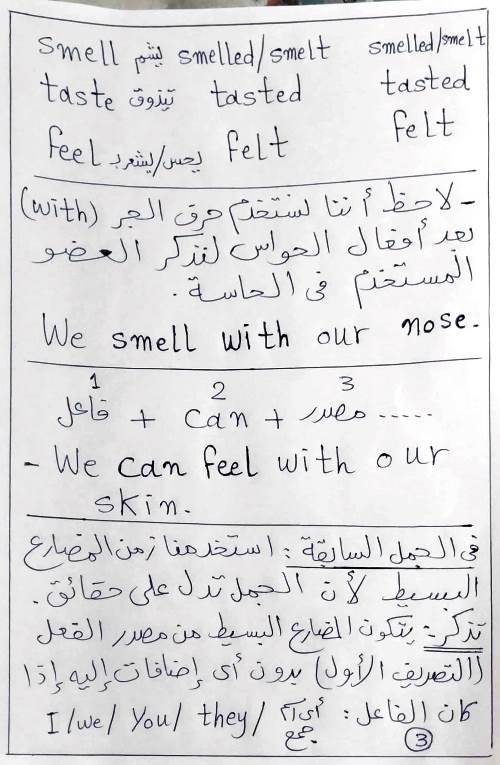 smell يشم smelled/smelt smelled/smelt
taste يتذوق tasted tasted
feel يحس/يشعر بـ felt felt
- لاحظ أننا نستخدم حرف الجر (with)
بعد أفعال الحواس لنذكر العضو
المستخدم فى الحاسة.
We smell with our nose.
1 2 3
فاعل + can + مصدر .....
- We can feel with our
skin.
فى الجمل السابقة: استخدمنا زمن المضارع
البسيط لأن الجمل تدل على حقائق.
تذكر: يتكون المضارع البسيط من مصدر الفعل
(التصريف الأول) بدون أى إضافات إليه إذا
كان الفاعل: I/we/ You/ they/ أى اسم جمع
3